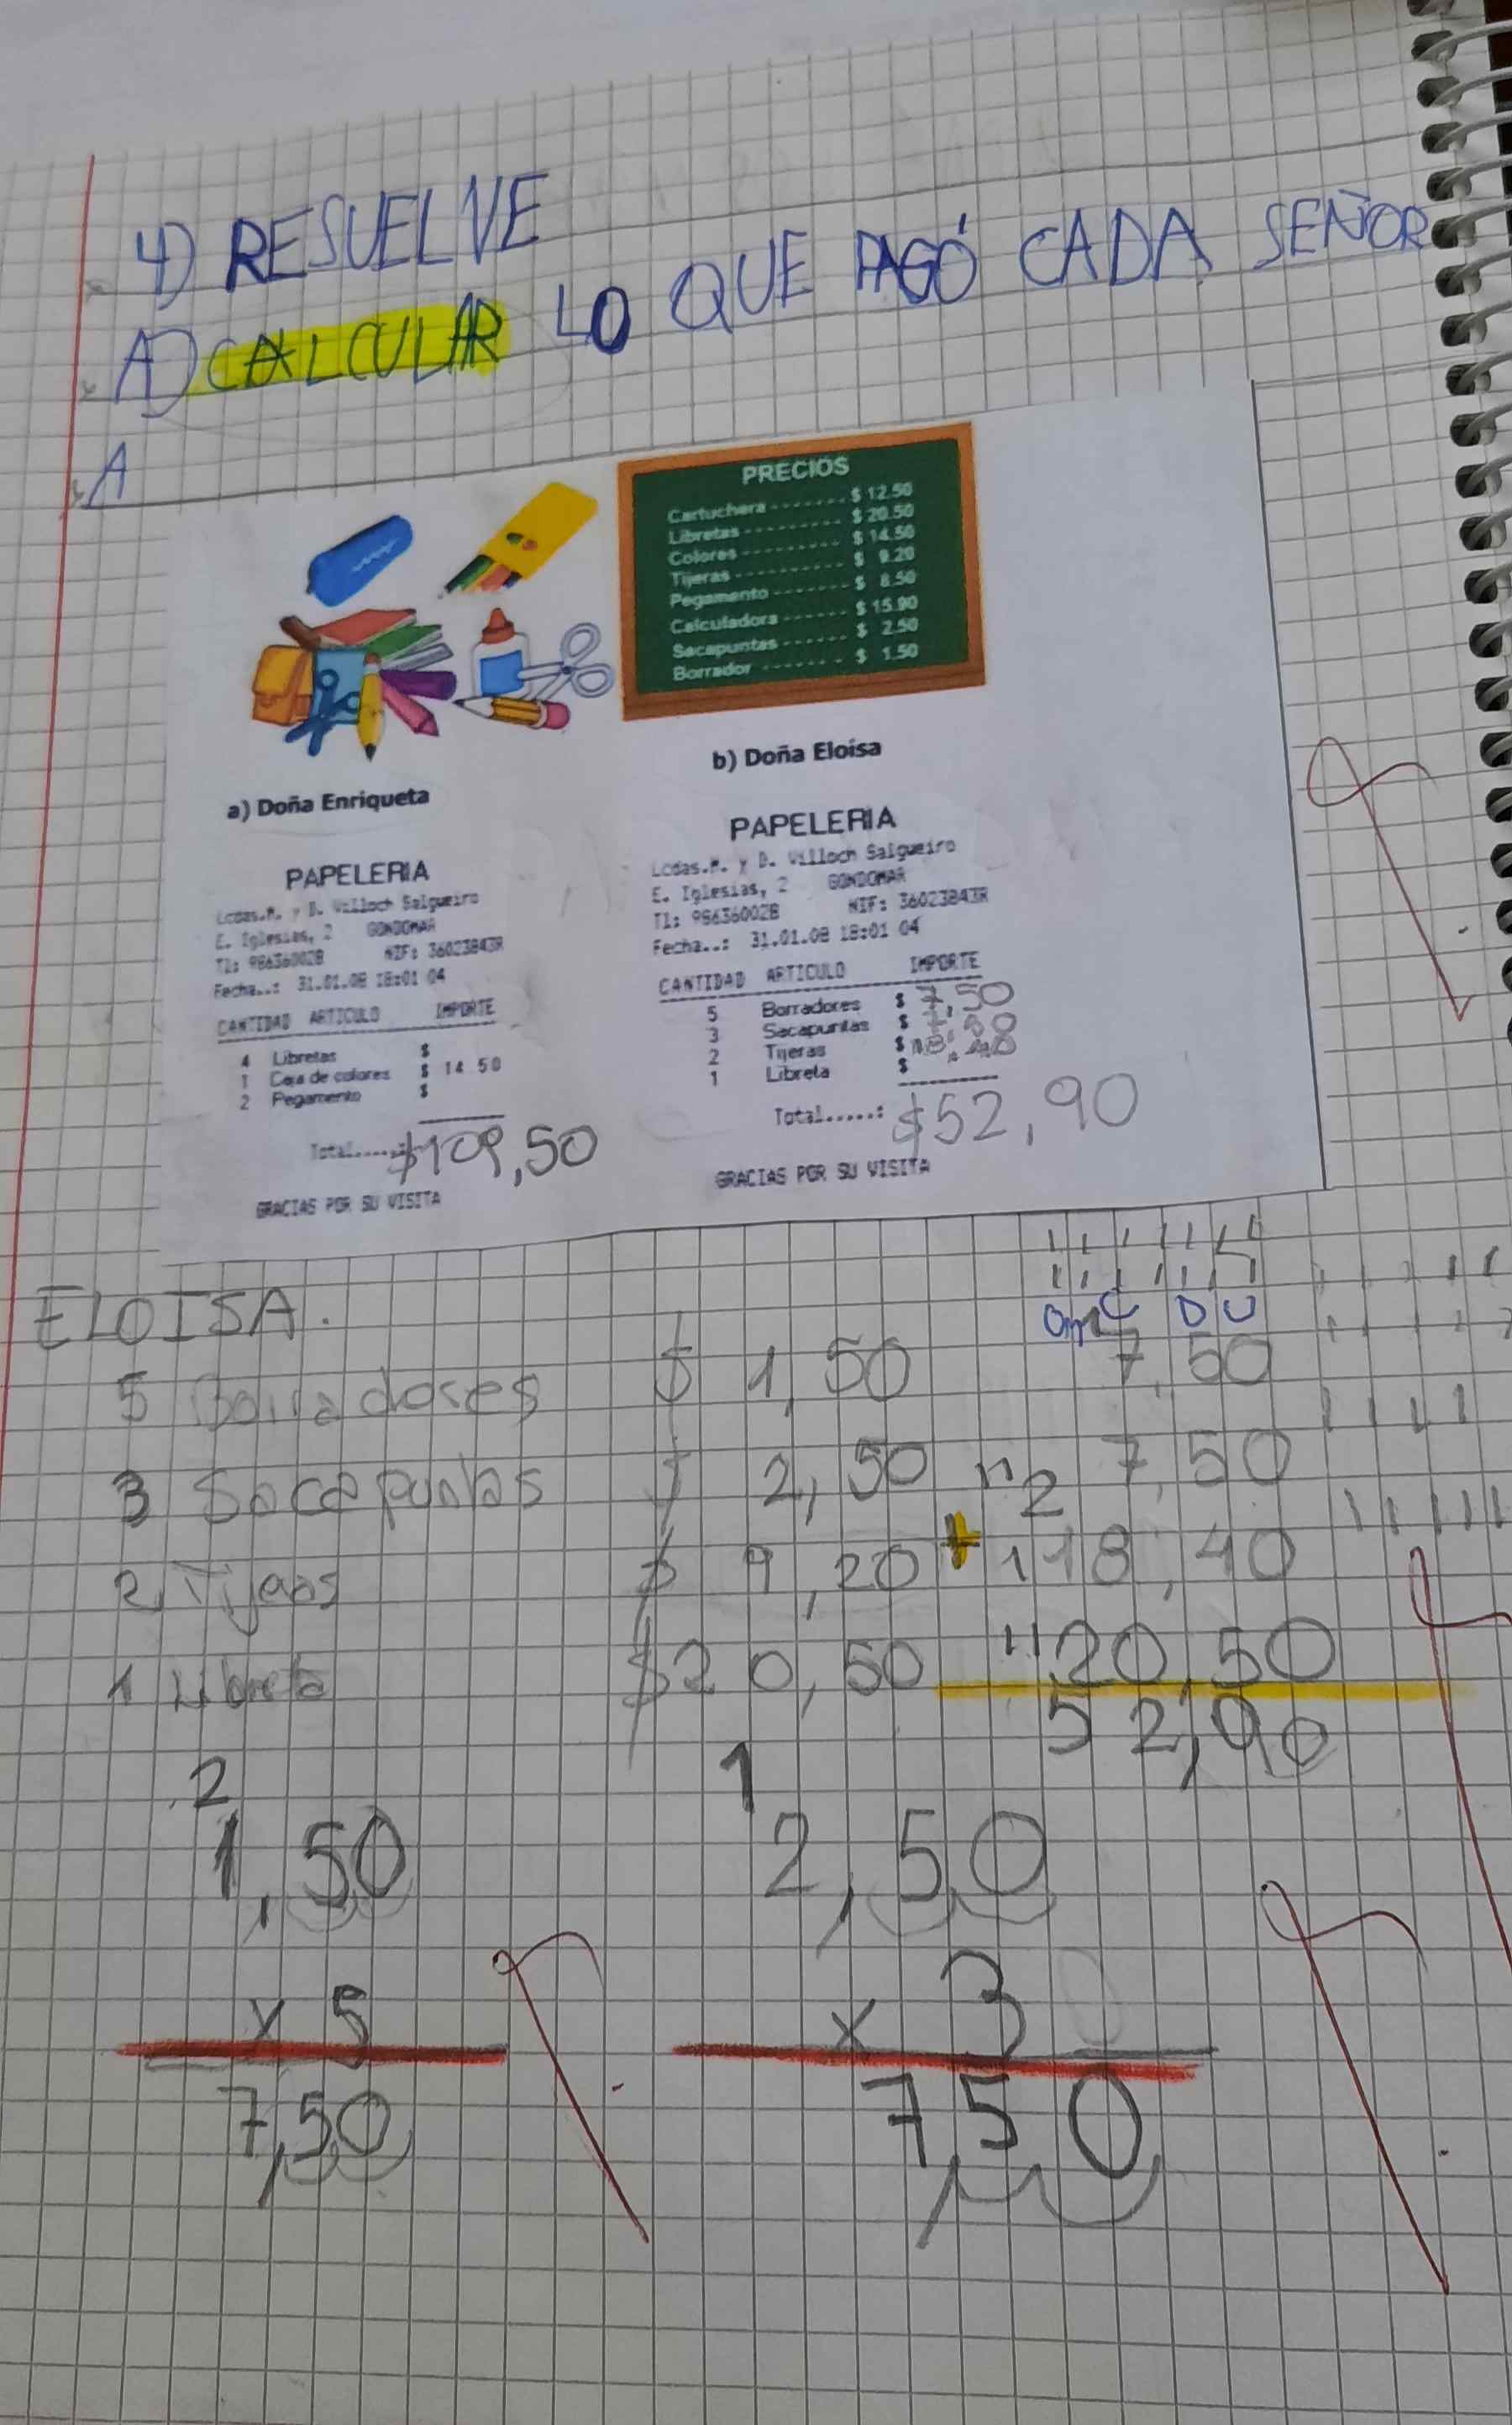 4) RESUELVE
A) CALCULAR LO QUE PAGÓ CADA SEÑOR
A
PRECIOS
Cartuchera ------- $ 12.50
Libretas --------- $ 20.50
Colores ---------- $ 14.50
Tijeras ---------- $ 9.20
Pegamento ------- $ 8.50
Calculadora ------ $ 15.90
Sacapuntas ------ $ 2.50
Borrador -------- $ 1.50
a) Doña Enriqueta
PAPELERIA
Lcdas.M. y D. Villoch Salgueiro
E. Iglesias, 2 GONDOMAR
Tl: 986360028 NIF: 36023843R
Fecha..: 31.01.08 18:01 04
CANTIDAD ARTICULO IMPORTE
4 Libretas $
1 Caja de colores $ 14.50
2 Pegamento $
Total.....: $109,50
GRACIAS POR SU VISITA
b) Doña Eloísa
PAPELERIA
Lcdas.M. y D. Villoch Salgueiro
E. Iglesias, 2 GONDOMAR
Tl: 986360028 NIF: 36023843R
Fecha..: 31.01.08 18:01 04
CANTIDAD ARTICULO IMPORTE
5 Borradores $ 7,50
3 Sacapuntas $
2 Tijeras $
1 Libreta $
Total.....: $52,90
GRACIAS POR SU VISITA
ELOISA.
C D U
5 Borradores $ 1,50 7,50
3 Sacapuntas $ 2,50 7,50
2 Tijeras $ 9,20 + 18,40
1 Libreta $20,50 20,50
52,90
2
1,50
x 5
7,50
1
2,50
x 3
7,50